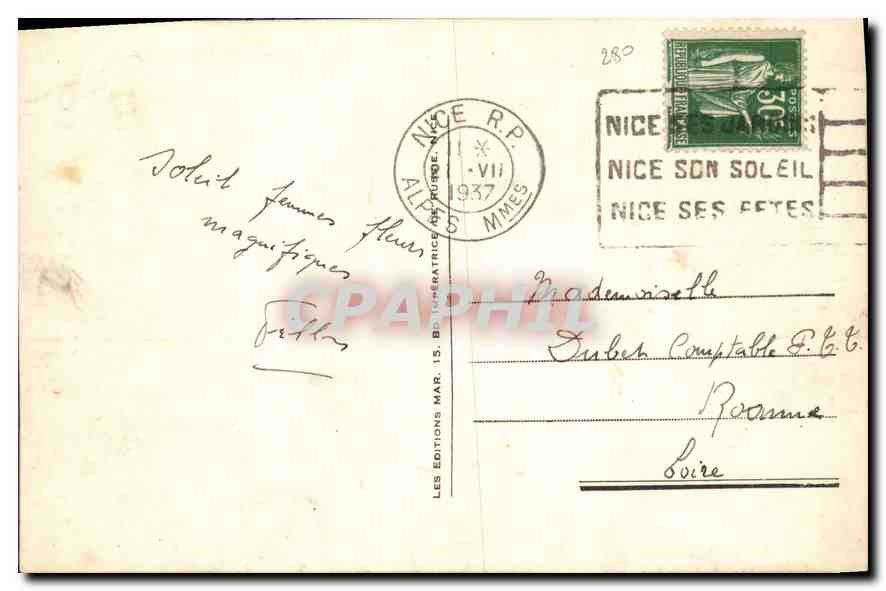 280
RÉPUBLIQUE FRANÇAISE
POSTES
30
NICE R.P.
* -VII
1937
ALPES MMES
NICE SES
NICE SON SOLEIL
NICE SES FETES
Soleil femmes fleurs
magnifiques
LES EDITIONS MAR. 15. BD IMPÉRATRICE DE RUSSIE. NICE
CPAPHIL
Mademoiselle
Comptable P.T.T.
Roanne
Loire